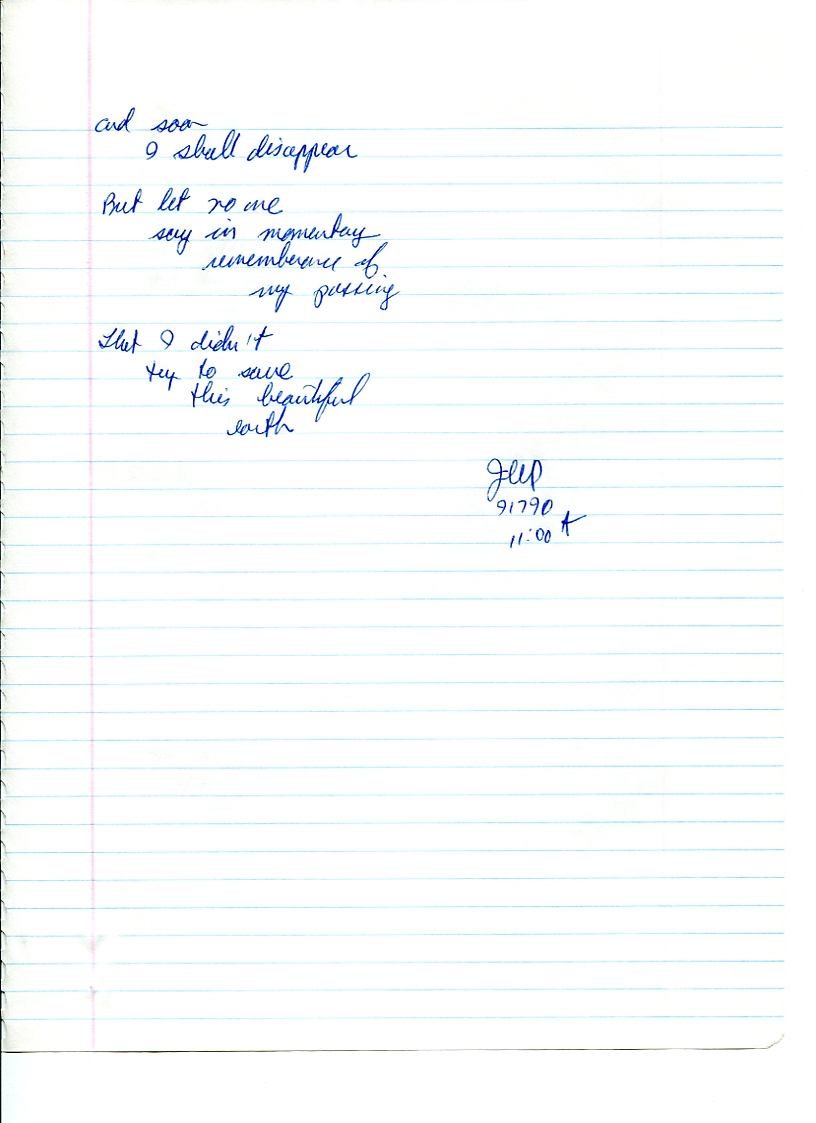 and soon
I shall disappear
But let no one
say in momentary
rememberance of
my passing
that I didn't
try to save
this beautiful
earth
91790
11:00 A